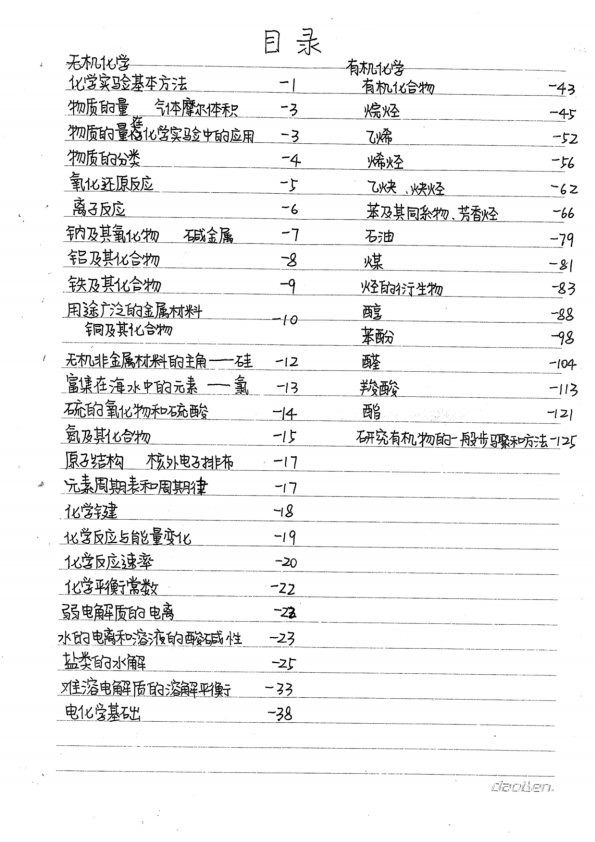 目录
无机化学
化学实验基本方法 -1
物质的量 气体摩尔体积 -3
物质的量在化学实验中的应用 -3
物质的分类 -4
氧化还原反应 -5
离子反应 -6
钠及其氧化物 碱金属 -7
铝及其化合物 -8
铁及其化合物 -9
用途广泛的金属材料 -10
铜及其化合物
无机非金属材料的主角——硅 -12
富集在海水中的元素——氯 -13
硫的氧化物和硫酸 -14
氮及其化合物 -15
原子结构 核外电子排布 -17
元素周期表和周期律 -17
化学键 -18
化学反应与能量变化 -19
化学反应速率 -20
化学平衡常数 -22
弱电解质的电离 -22
水的电离和溶液的酸碱性 -23
盐类的水解 -25
难溶电解质的溶解平衡 -33
电化学基础 -38
有机化学
有机化合物 -43
烷烃 -45
乙烯 -52
烯烃 -56
乙炔、炔烃 -62
苯及其同系物、芳香烃 -66
石油 -79
煤 -81
烃的衍生物 -83
醇 -88
苯酚 -98
醛 -104
羧酸 -113
酯 -121
研究有机物的一般步骤和方法 -125
daolien